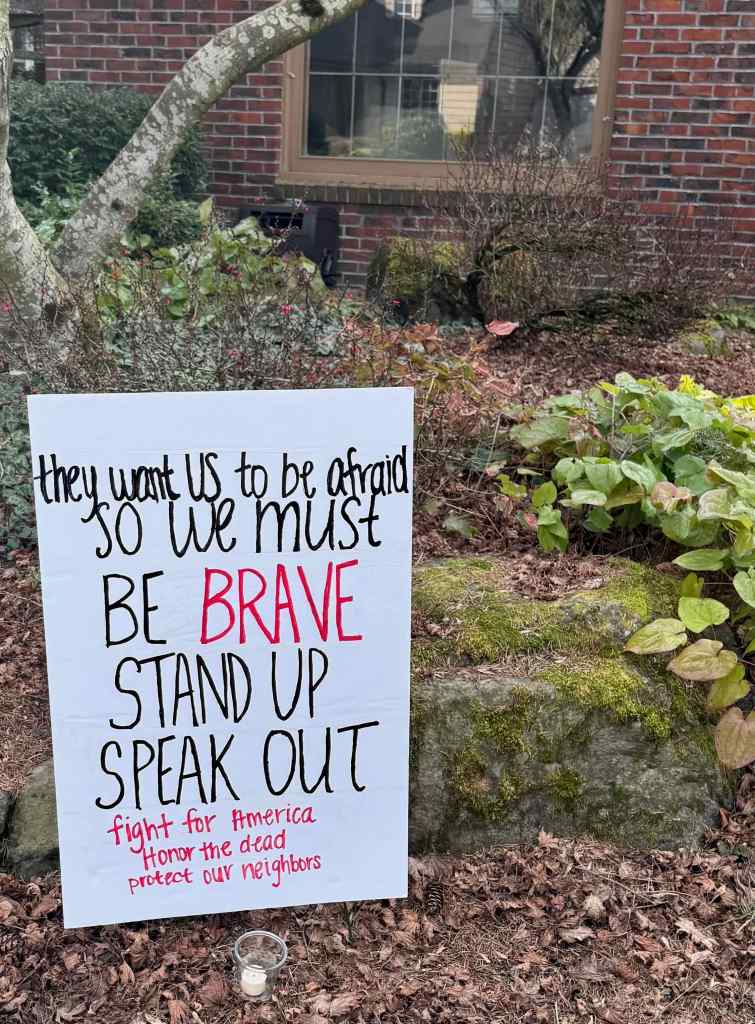 they want US to be afraid
so we must
BE BRAVE
STAND UP
SPEAK OUT
fight for America
Honor the dead
protect our neighbors